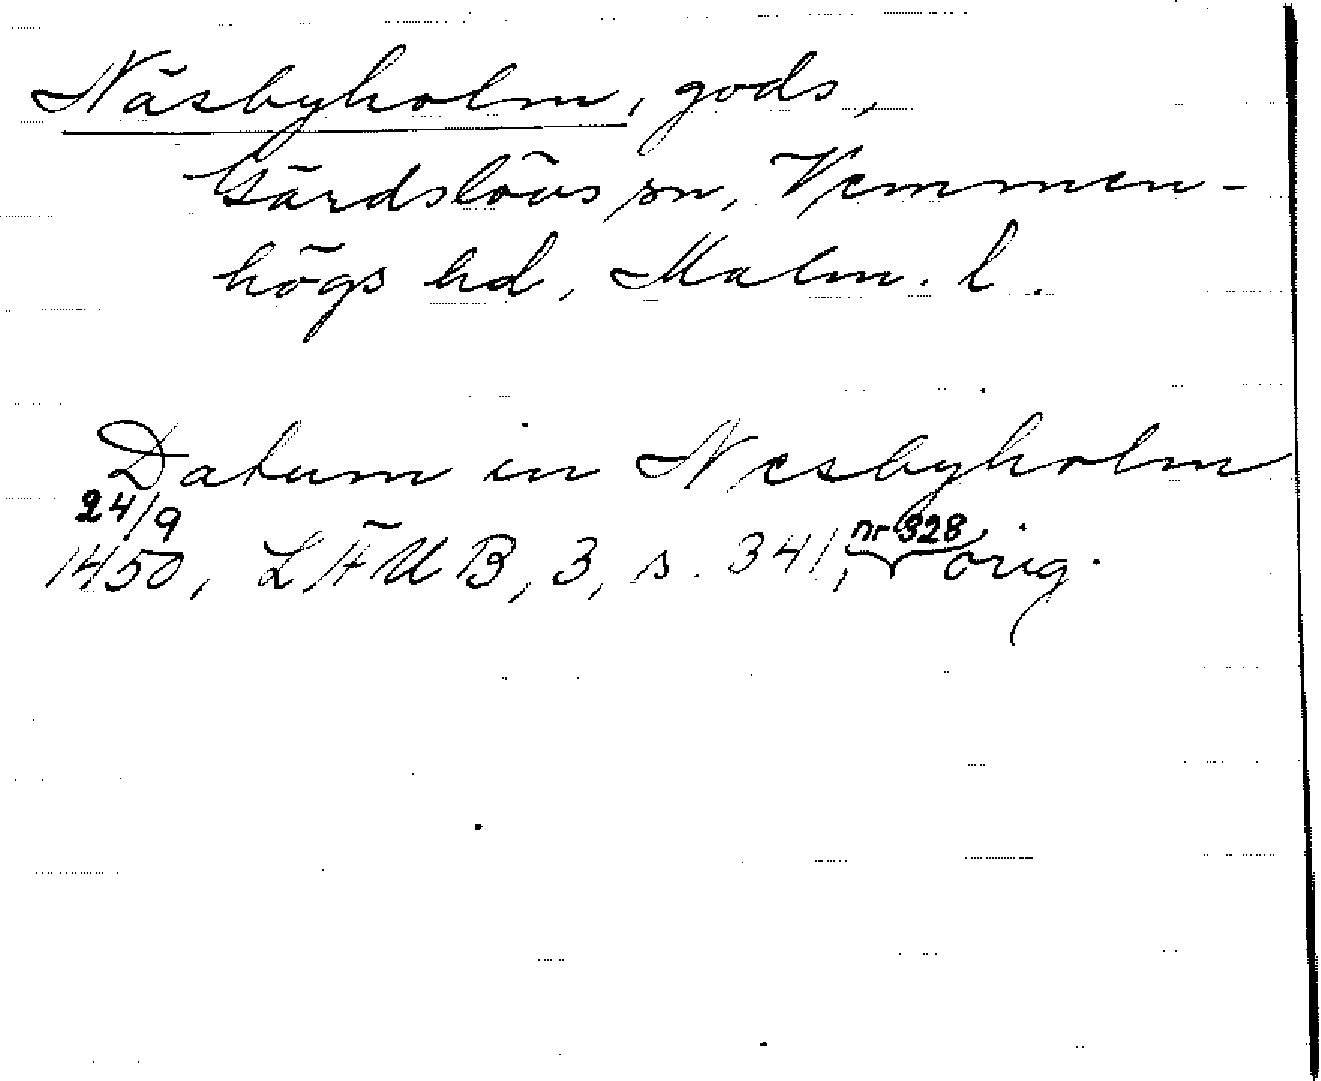 Näsbyholm, gods,
Gärdslövs sn, Vemmen-
högs hd, Malm. l.
Datum in Nesbyholm
24/9
1450, LÄUB, 3, s. 341, nr 328, orig.